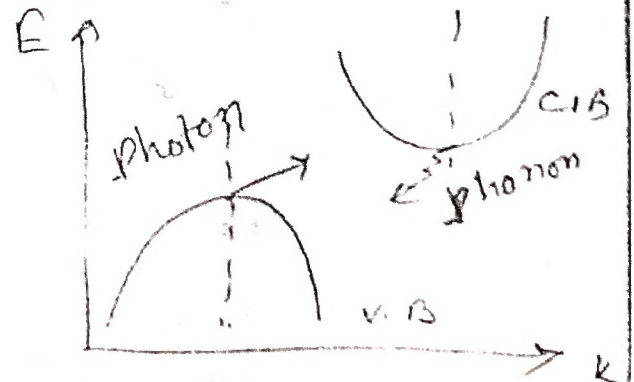 E
photon
C.B
phonon
V.B
K